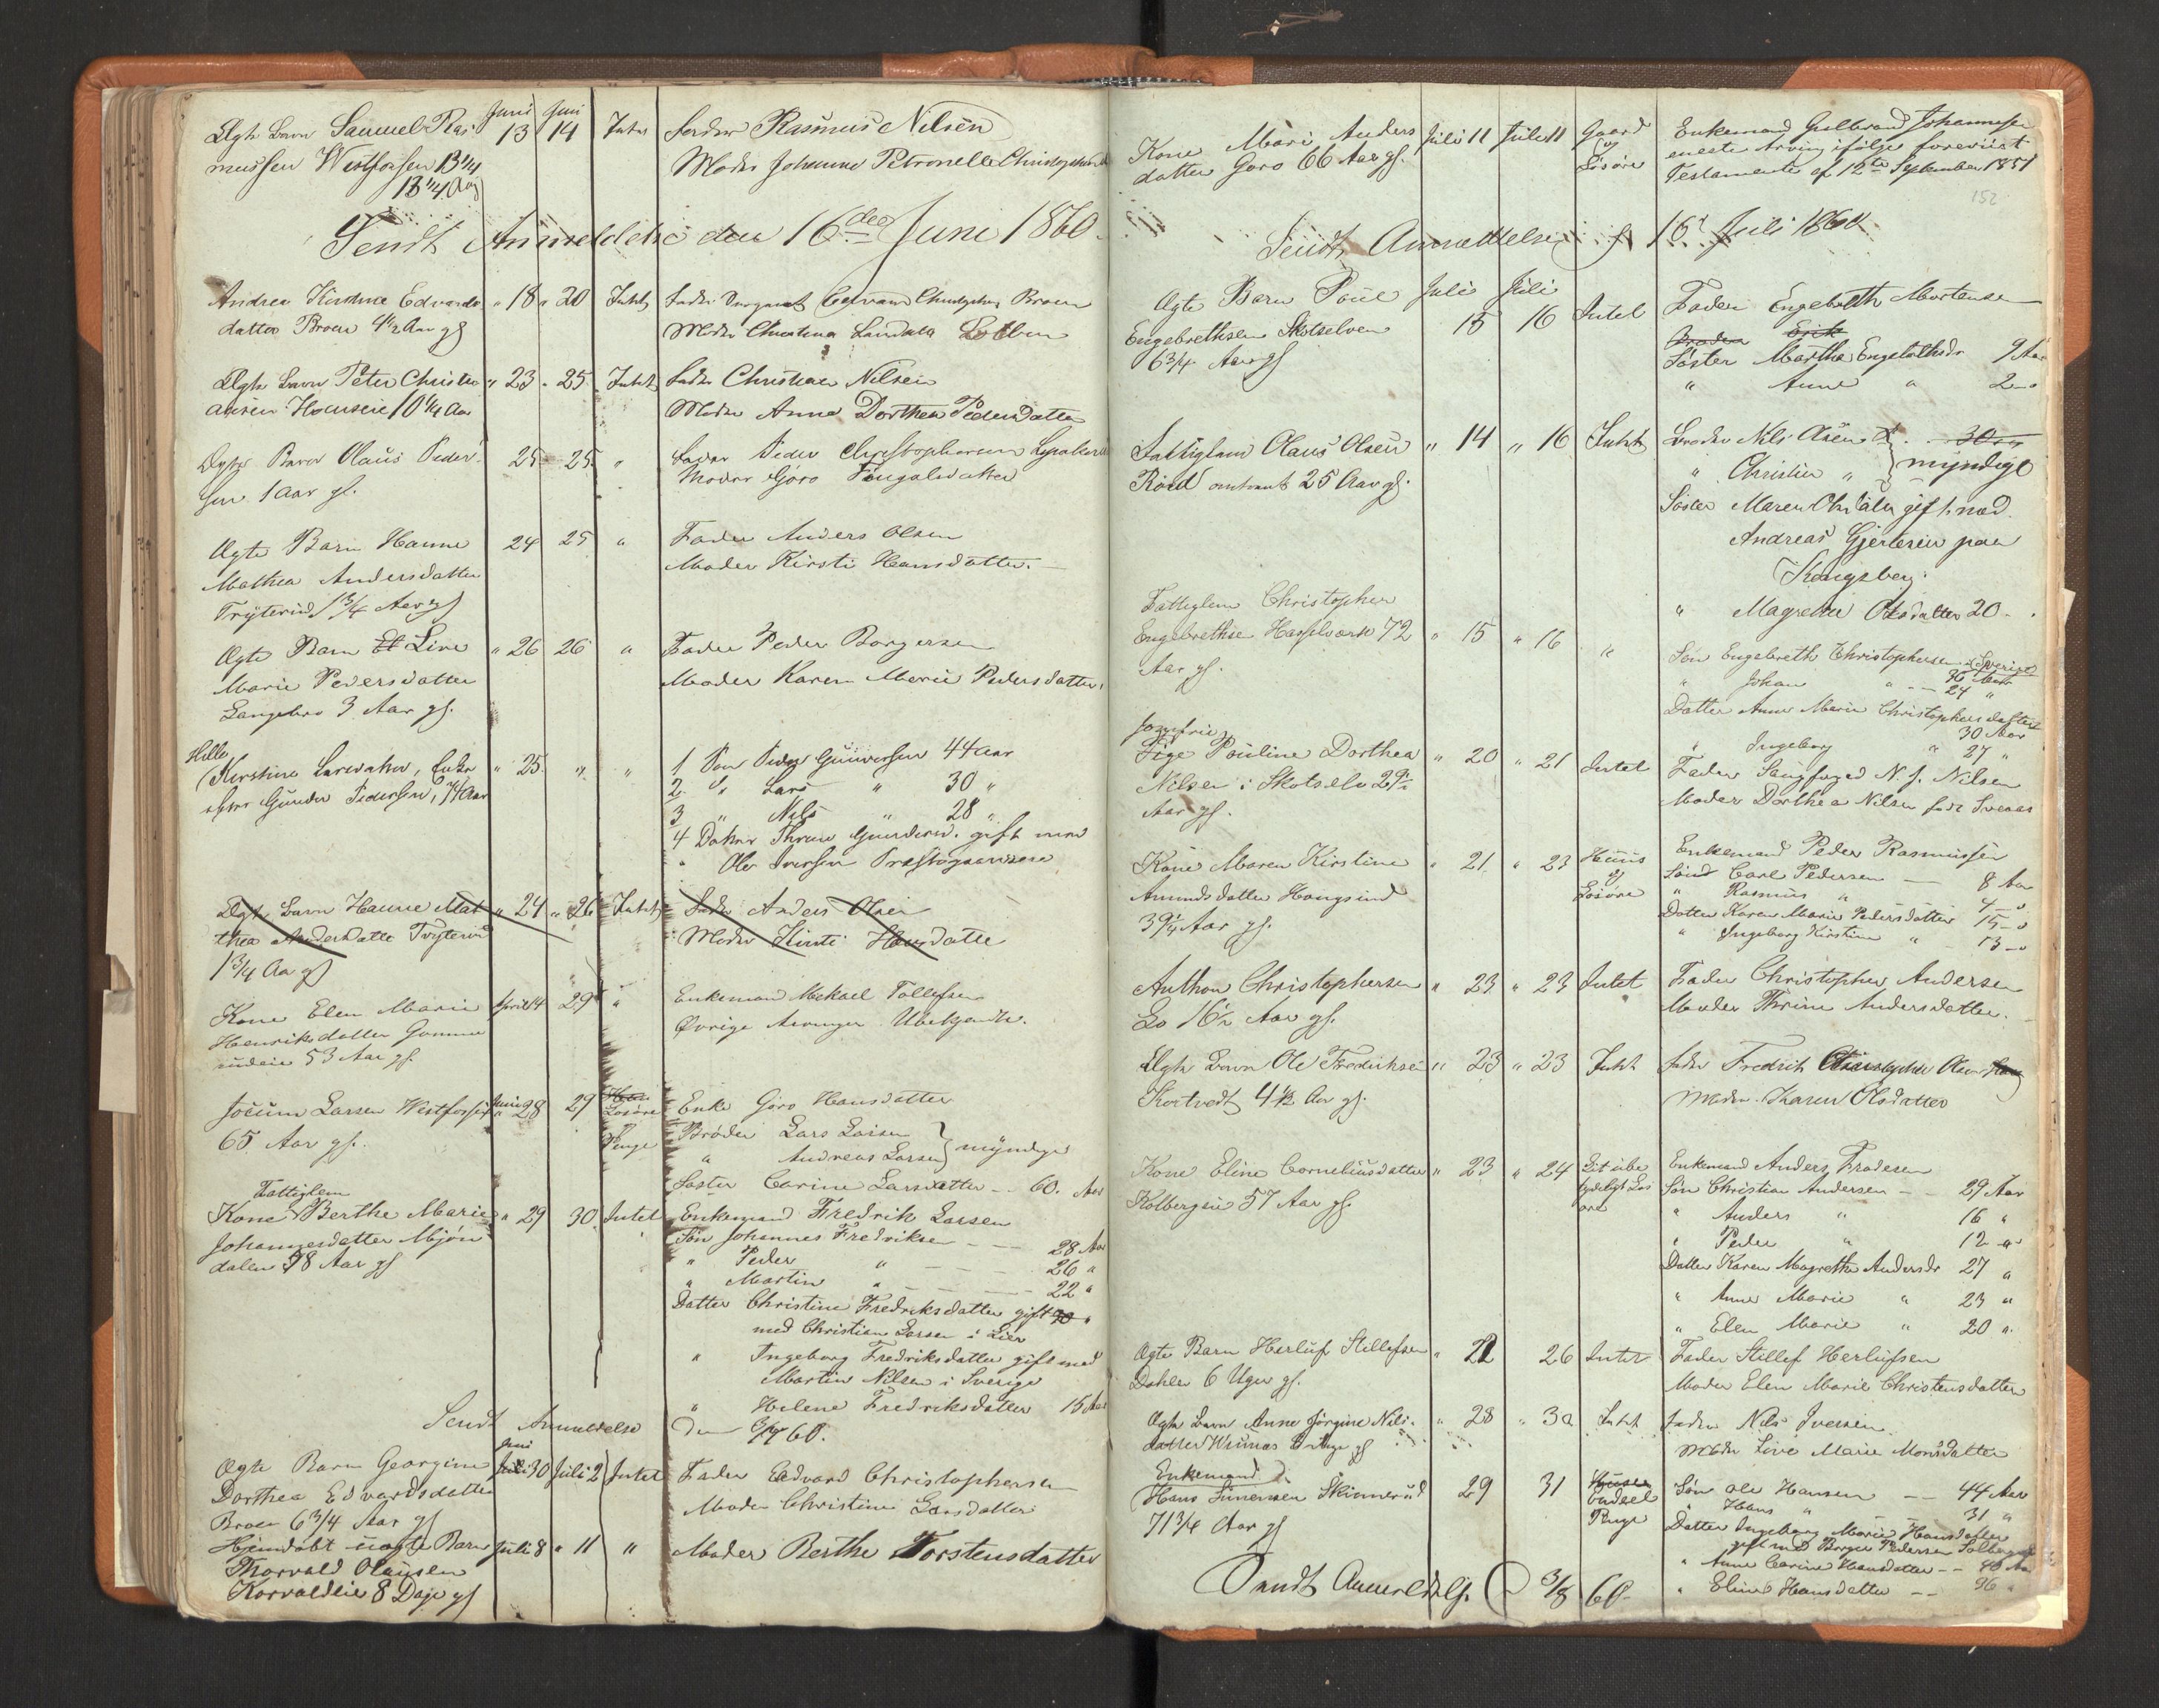 Ægte Barn Samuel Ras
mussen Westfossen 13 1/4
13 1/4 Aar
Juni 13 Juni 14 Intet
Fader Rasmus Nilsen
Moder Johanne Petronelle
Sendt Anmeldelse den 16de Juni 1860
Andrea Edvards
datter Broen 4 1/2 Aar gl
" 18 " 20 Intet
Fader Edvard Broen
Moder Christina
Ægte Barn Peter Christi
ansen 10 1/4 Aar
" 23 " 25 Intet
Fader Christian Nilsen
Moder Anna Dorthea Pedersdatter
Ægte Barn Olaus Peder
sen 1 Aar gl.
25 25 "
Fader Peder Christophersen
Moder Goro
Ægte Barn Hanne
Mathea Andersdatter
Tryterud 1 3/4 Aar gl
24 25 "
Fader Anders Olsen
Moder Kirsti Hansdatter.
Ægte Barn Live
Marie Pedersdatter
Langebro 3 Aar gl.
" 26 26 "
Fader Peder Borgersen
Moder Karen Marie Pedersdatter
Hille
Kirstine Larsdatter, Enke
efter Gunder Pedersen, 74 Aar
" 25 " "
1 Søn Peder Gundersen 44 Aar
2 " Lars " 30 "
3 " Nils " 28 "
4 Datter Thrine Gundersd. gift med
" Ole Iversen
Ægte Barn Hanne Mat
thea Andersdatter Tryterud
1 3/4 Aar gl
" 24 " 26 Intet
Fader Anders Olsen
Moder Kirsti Hansdatter
Kone Elen Marie
Henriksdatter Gomme
rudeie 53 Aar gl.
April 14 29 "
Enkemand Mekael Tollefsen
Øvrige Arvinger Ubekjendte.
Jocum Larsen Westfossen
65 Aar gl.
Juni 28 29 Losøre
Penge
Enke Goro Hansdatter
Brøder Lars Larsen
" Andreas Larsen } myndige
Søster Carine Larsdatter -- 60. Aar
Fattiglem
Kone Berthe Marie
Johannesdatter Mjøn
dalen 58 Aar gl
" 29 30 Intet
Enkemand Fredrik Larsen
Søn Johannes Fredriksen -- 28 Aar
" Peder " -- 26 "
" Martin " -- 22 "
Datter Christine Fredriksdatter gift 30 "
med Christian Larsen i Lier
" Ingeborg Fredriksdatter gift med
Martin Nilsen i Sverige
" Helene Fredriksdatter 15 Aar
Sendt Anmeldelse den 3/7 60.
Ægte Barn Georgine
Dorthea Edvardsdatter
Broen 6 3/4 Aar gl
Juni 30 Juli 2 Intet
Fader Edvard Christophersen
Moder Christine Larsdatter
Hjemdøbt uægte Barn
Thorvald Olausen
Korvaldeie 8 Dage gl
Juli 8 " 11 "
Moder Berthe Torstensdatter
Kone Mari Anders
datter Goro 66 Aar gl.
Juli 11 Juli 11 Gaard
og
Løsøre
Enkemand Gulbrand Johannesen
eneste Arving ifølge foreviist
Testamente af 12te September 1851
152
Sendt Anmeldelse 16d Juli 1860
Ægte Barn Poul
Engebrethsen Skotselven
6 3/4 Aar gl
Juli 15 Juli 16 Intet
Fader Engebreth Mortensen
Broder Erik
Søster Marthe Engebrethsdr 9 Aar
" Anne " 2 "
Fattiglem Olaus Olsen
Røud omtrent 25 Aar gl.
" 14 " 16 Intet
Broder Nils Olsen 30
" Christian " } myndige
Søster Maren Olsdatter gift med
Andreas Gjertesen paa
Kongsberg.
" Magrethe Olsdatter 20 -
Fattiglem Christopher
Engebrethsen Hasselværk 72
Aar gl.
" 15 " 16 "
Søn Engebreth Christophersen i Sverige
36 Aar
" Johan " -- 24 "
Datter Anne Marie Christophersdatter
30 Aar
" Ingeborg " 27 "
Jomfrue
Pige Pouline Dorthea
Nilsen i Skotselv 29 1/2
Aar gl.
" 20 " 21 Intet
Fader Saugfoged N. J. Nilsen
Moder Dorthea Nilsen
Kone Maren Kirstine
Amundsdatter Hougsund
39 1/4 Aar gl.
" 21 " 23 Huus
og
Løsøre
Enkemand Peder Rasmussen
Søn Carl Pedersen -- 8 Aar
" Rasmus " 4 -"
Datter Karen Marie Pedersdatter 15 -"
" Ingeborg Kirstine " 13 -"
Anthon Christophersen
Lo 16 1/2 Aar gl.
" 23 " 23 Intet
Fader Christopher Andersen
Moder Thrine Andersdatter.
Ægte Barn Ole Fredriksen
Kortvedt 4 1/2 Aar gl.
" 23 " 23 Intet
Fader Fredrik Christopher Olsen
Moder Karen Olsdatter
Kone Eline Corneliusdatter
Kolbergeie 57 Aar gl.
" 23 " 24 Lit ube
tydeligt Løs
øre
Enkemand Anders Frodesen
Søn Christian Andersen -- 29 Aar
" Anders " 16 "
" Peder " 12 "
Datter Karen Magrethe Andersdr 27 "
" Anne Marie " 23 "
" Elen Marie " 20 "
Ægte Barn Herluf Stillefsen
Dahler 6 Uger gl.
" 22 26 Intet
Fader Stillef Herlufsen
Moder Elen Marie Christensdatter
Ægte Barn Anne Jørgine Nils
datter 6 Uge gl
" 28 " 30 Intet
Fader Nils Iversen
Moder Live Marie Monsdatter
Enkemand
Hans Simensen Skiømerud
71 3/4 Aar gl
29 31
Penge
Søn Ole Hansen -- 44 Aar
" Hans " -- 31 "
Datter Ingeborg Marie Hansdatter
gift med Borger Pedersen
" Anne Carine Hansdatter -- 40 Aar
" Eline Hansdatter -- 36 "
Sendt Anmeldelse 3/8 60